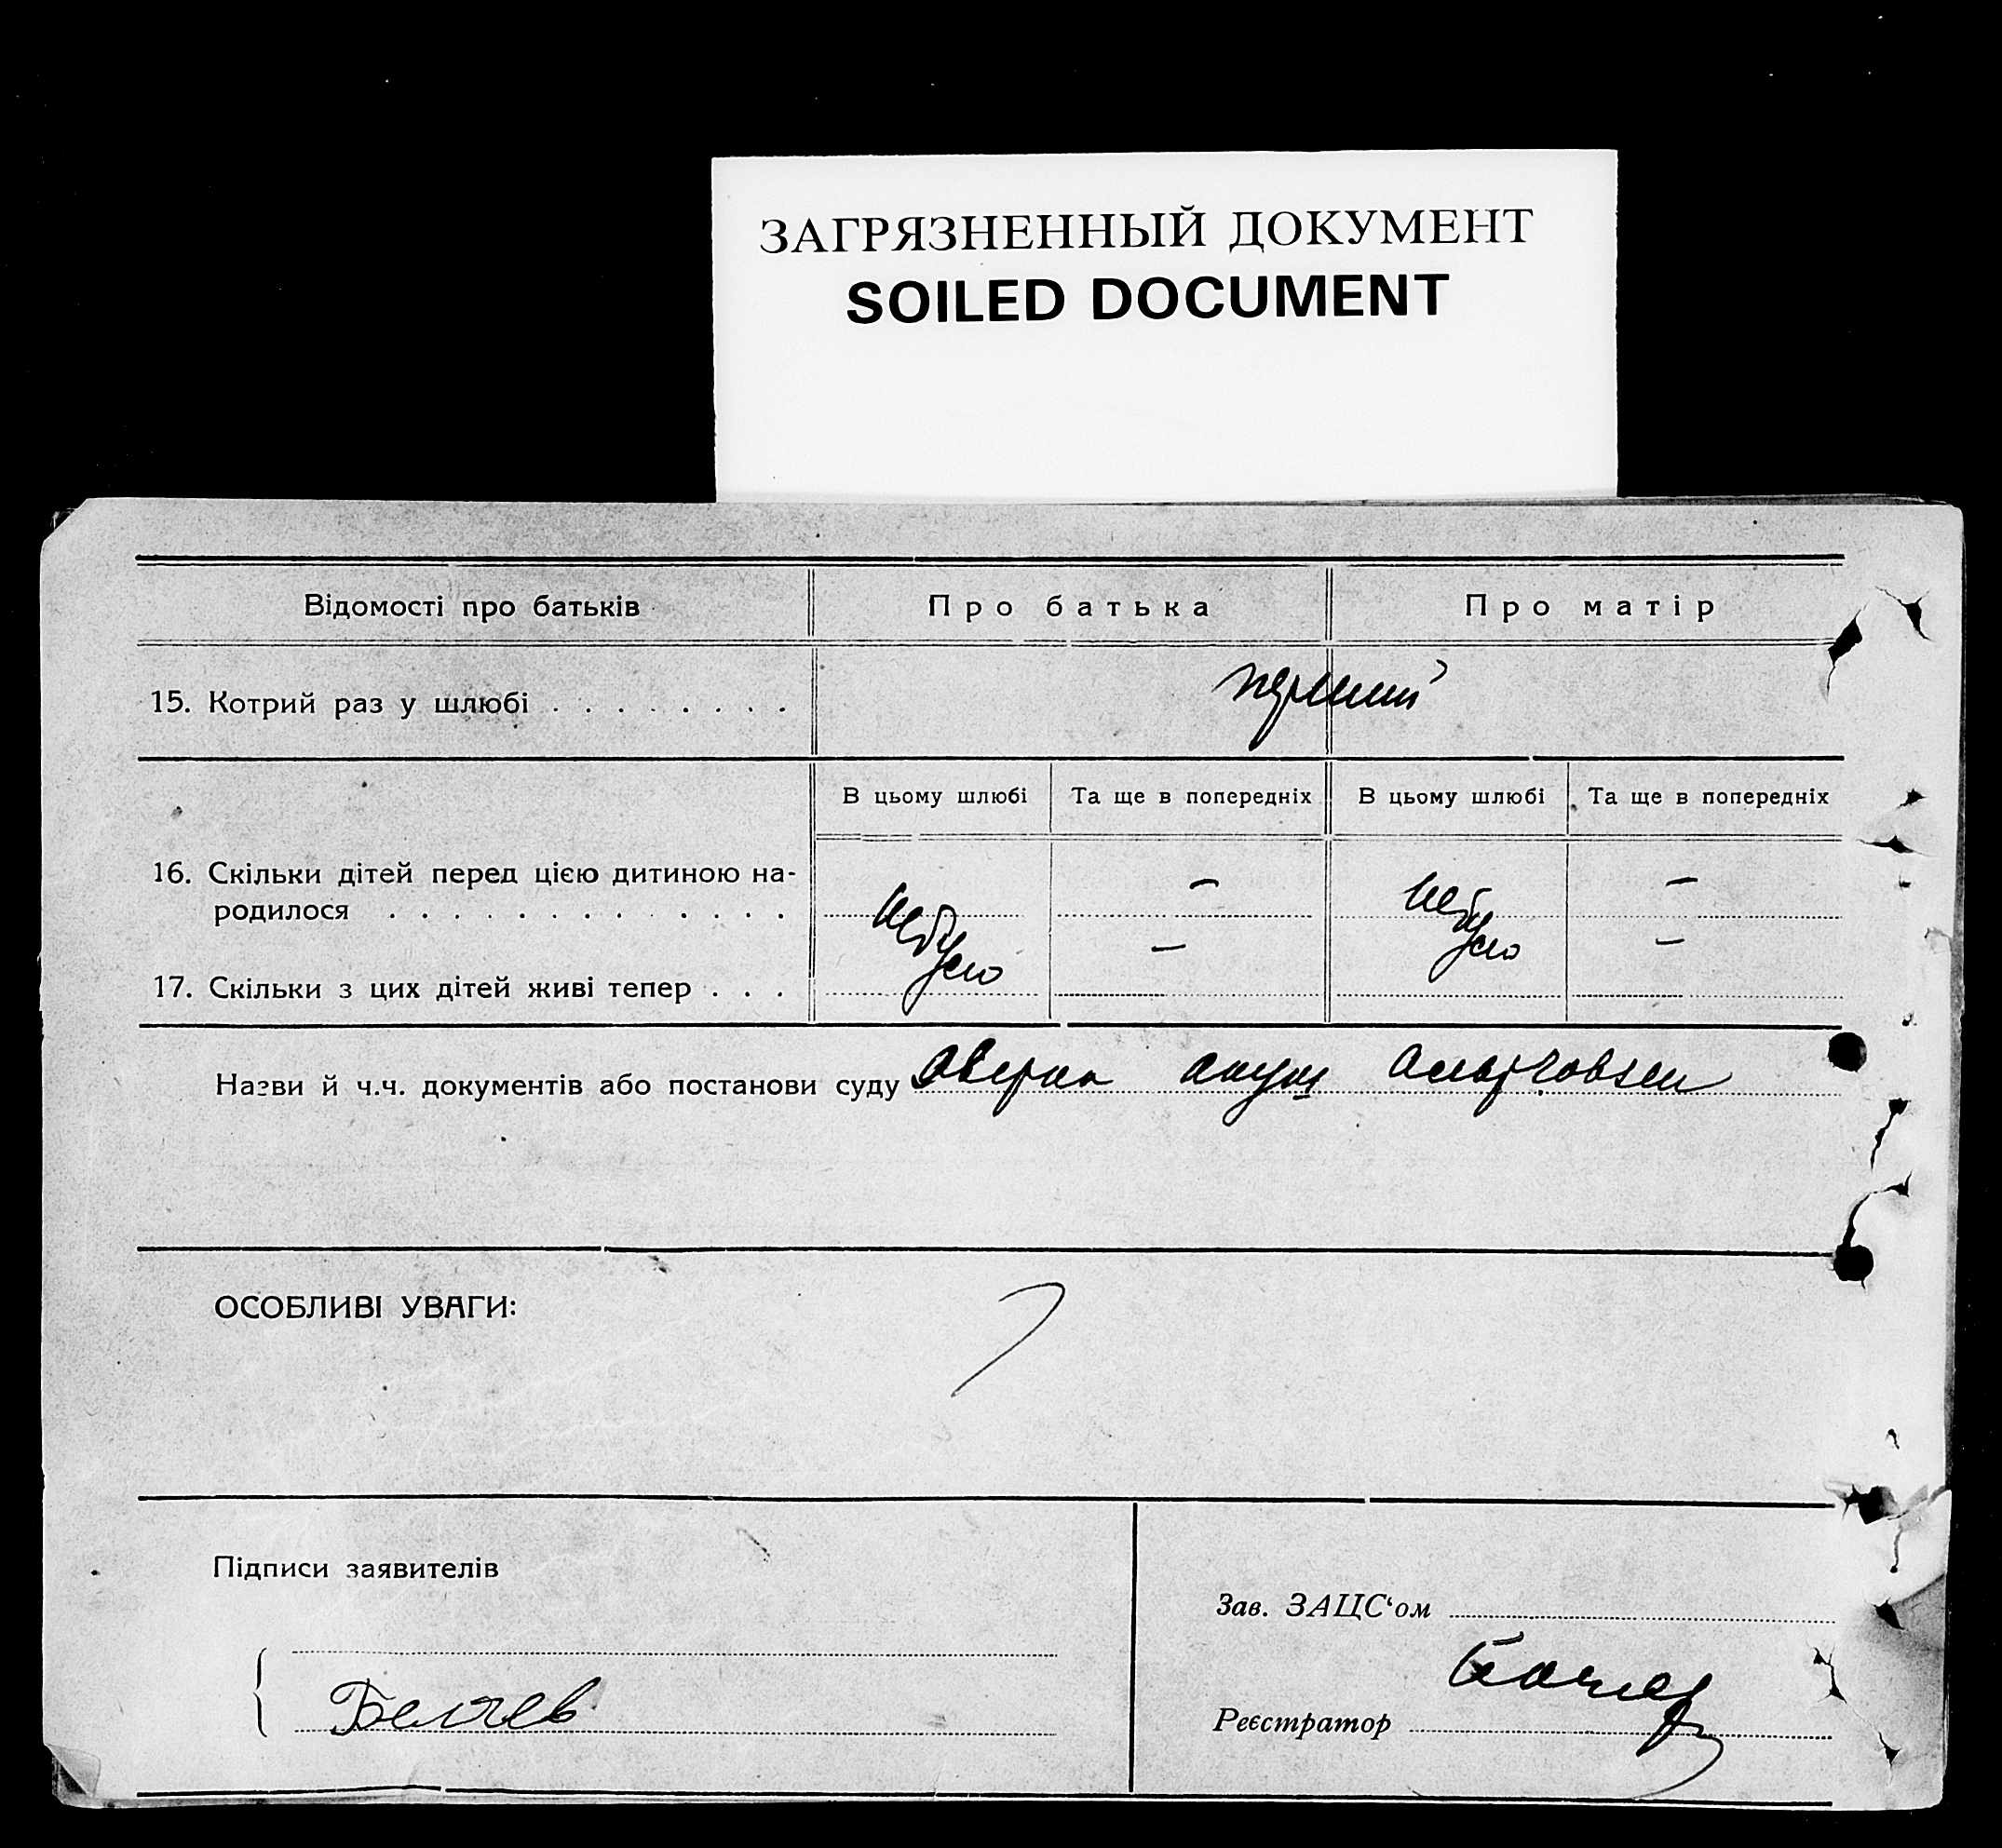 ЗАГРЯЗНЕННЫЙ ДОКУМЕНТ
SOILED DOCUMENT
Відомості про батьків
Про батька
Про матір
15. Котрий раз у шлюбі . . . . . . . .
перший
В цьому шлюбі
Та ще в попередніх
В цьому шлюбі
Та ще в попередніх
16. Скільки дітей перед цією дитиною на-
родилося . . . . . . . . . . . . .
— —
не було
не було
— —
17. Скільки з цих дітей живі тепер . . .
Назви й ч.ч. документів або постанови суду
ОСОБЛИВІ УВАГИ:
Підписи заявителів
Беляев
Зав. ЗАЦС‘ом
Реєстратор